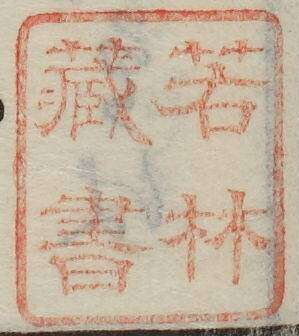 若林
藏書